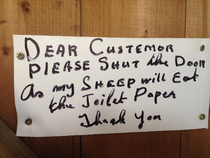 DEAR CUSTEMOR
PLEASE SHUT the DOOR
as my SHEEP will Eat
the Toilet Paper
Thank You